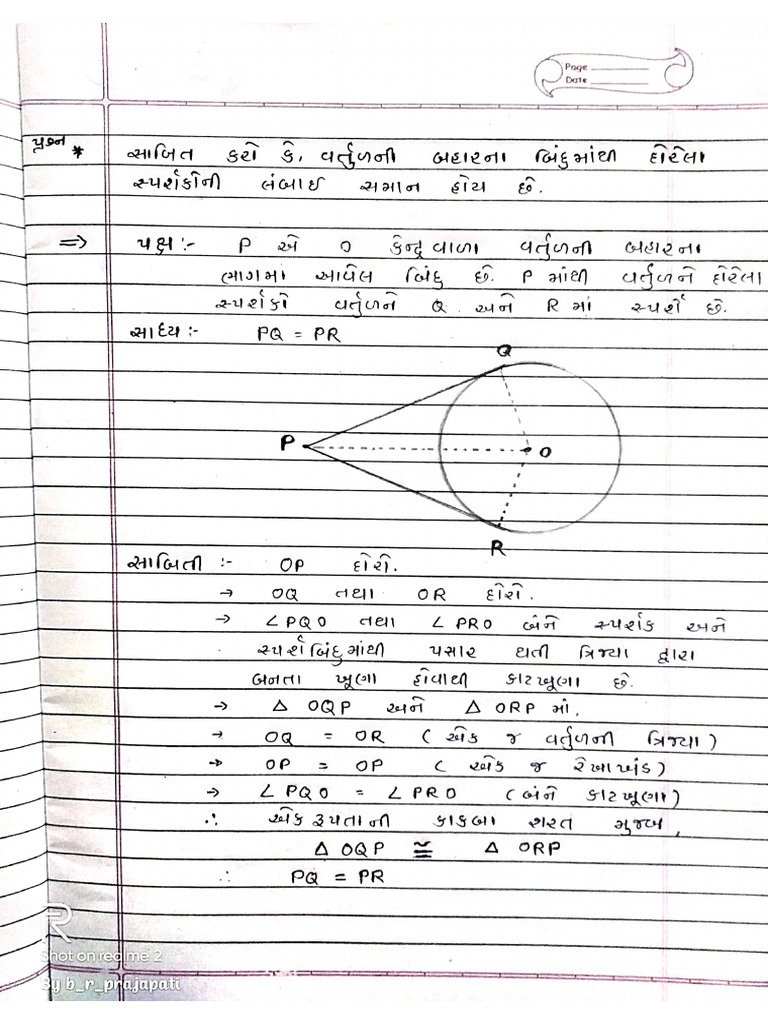 Page
Date
પ્રશ્ન * સાબિત કરો કે, વર્તુળની બહારના બિંદુમાંથી દોરેલા
સ્પર્શકોની લંબાઈ સમાન હોય છે.
⇒ પક્ષ :- P એ O કેન્દ્ર વાળા વર્તુળની બહારના
ભાગમાં આવેલ બિંદુ છે. P માંથી વર્તુળને દોરેલા
સ્પર્શકો વર્તુળને Q અને R માં સ્પર્શે છે.
સાધ્ય :- PQ = PR
Q
P
O
R
સાબિતી :- OP દોરો.
→ OQ તથા OR દોરો.
→ ∠PQO તથા ∠PRO બંને સ્પર્શક અને
સ્પર્શબિંદુમાંથી પસાર થતી ત્રિજ્યા દ્વારા
બનતા ખૂણા હોવાથી કાટખૂણા છે.
→ △ OQP અને △ ORP માં,
→ OQ = OR ( એક જ વર્તુળની ત્રિજ્યા )
→ OP = OP ( એક જ રેખાખંડ )
→ ∠PQO = ∠PRO (બંને કાટખૂણા)
∴ એકરૂપતાની કાકબા શરત મુજબ,
△ OQP ≅ △ ORP
∴ PQ = PR
Shot on realme 2
By b_r_prajapati